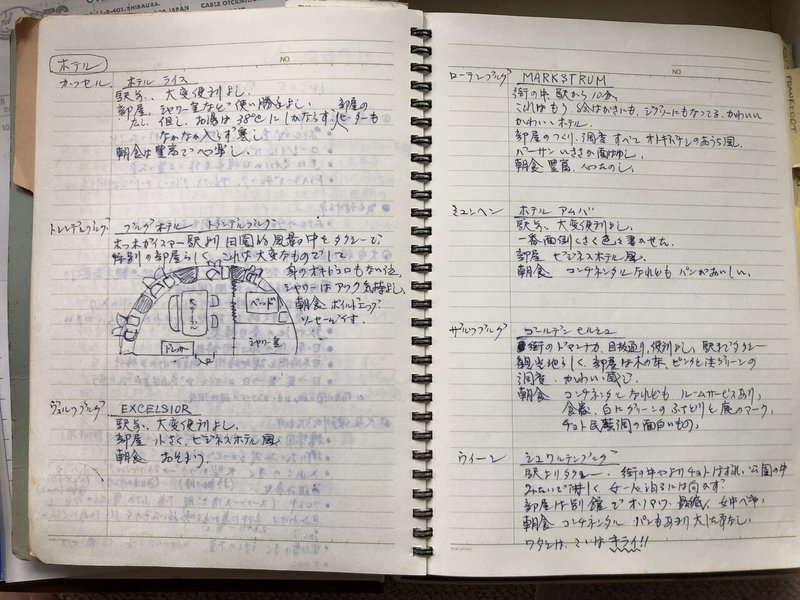 ホテル
NO.
カッセル
ホテル ライス
駅前、大変便利よし。
部屋、シャワー室など使い勝手よし。部屋の
広し、但し、お湯は38℃にしかならず、ヒーターも
なかなか入らず寒し。
朝食は豊富で
トレンデルブルグ
ブルグホテル トランデルブルグ
ホッホガイスマー駅より田園的風景の中をタクシーで
特別の部屋らしく、これは大変なものでして
身のオキドコロもない位、
シャワーはアツク気持よし。
朝食 ボイルドエッグ
ソーセージです。
ベッド
ドレッサー
シャワー室
ヴュルツブルグ
EXCELSIOR
駅前、大変便利よし。
部屋 小さく、ビジネスホテル風
朝食 おそまつ。
NO.
ローテンブルグ
MARKSTRUM
街の中 駅から10分、
これはもう 絵はがきにも、ジグソーにもなってる、かわいい
かわいいホテル。
部屋のつくり、調度 すべて オトギバナシのおうち風。
バーサン いささか面倒し。
朝食 豊富、
ミュンヘン
ホテル アムバ
駅前、大変便利よし。
一番面倒くさく色々書かせた。
部屋 ビジネスホテル風
朝食 コンチネンタルなれども パンがおいしい。
ザルツブルグ
ゴールデン ヒルシュ
街のドマンナカ、目抜通り、便利よし、駅までタクシー
観光地近く、部屋は木の床、ピンクと淡グリーンの
調度、かわいい感じ。
朝食 コンチネンタルなれども ルームサービスあり、
食器、白にグリーンのふちどりと鹿のマーク、
チョト民芸調の面白いもの。
ウィーン
シュワルテンブルグ
駅よりタクシー、街の中やよりチョトはずれ、公園の中
みたいで淋しく 女一人泊るには向かず?
部屋は別館で
朝食 コンチネンタル パンもあまり
ワタシは、こいはキライ!!
FRANKFORT